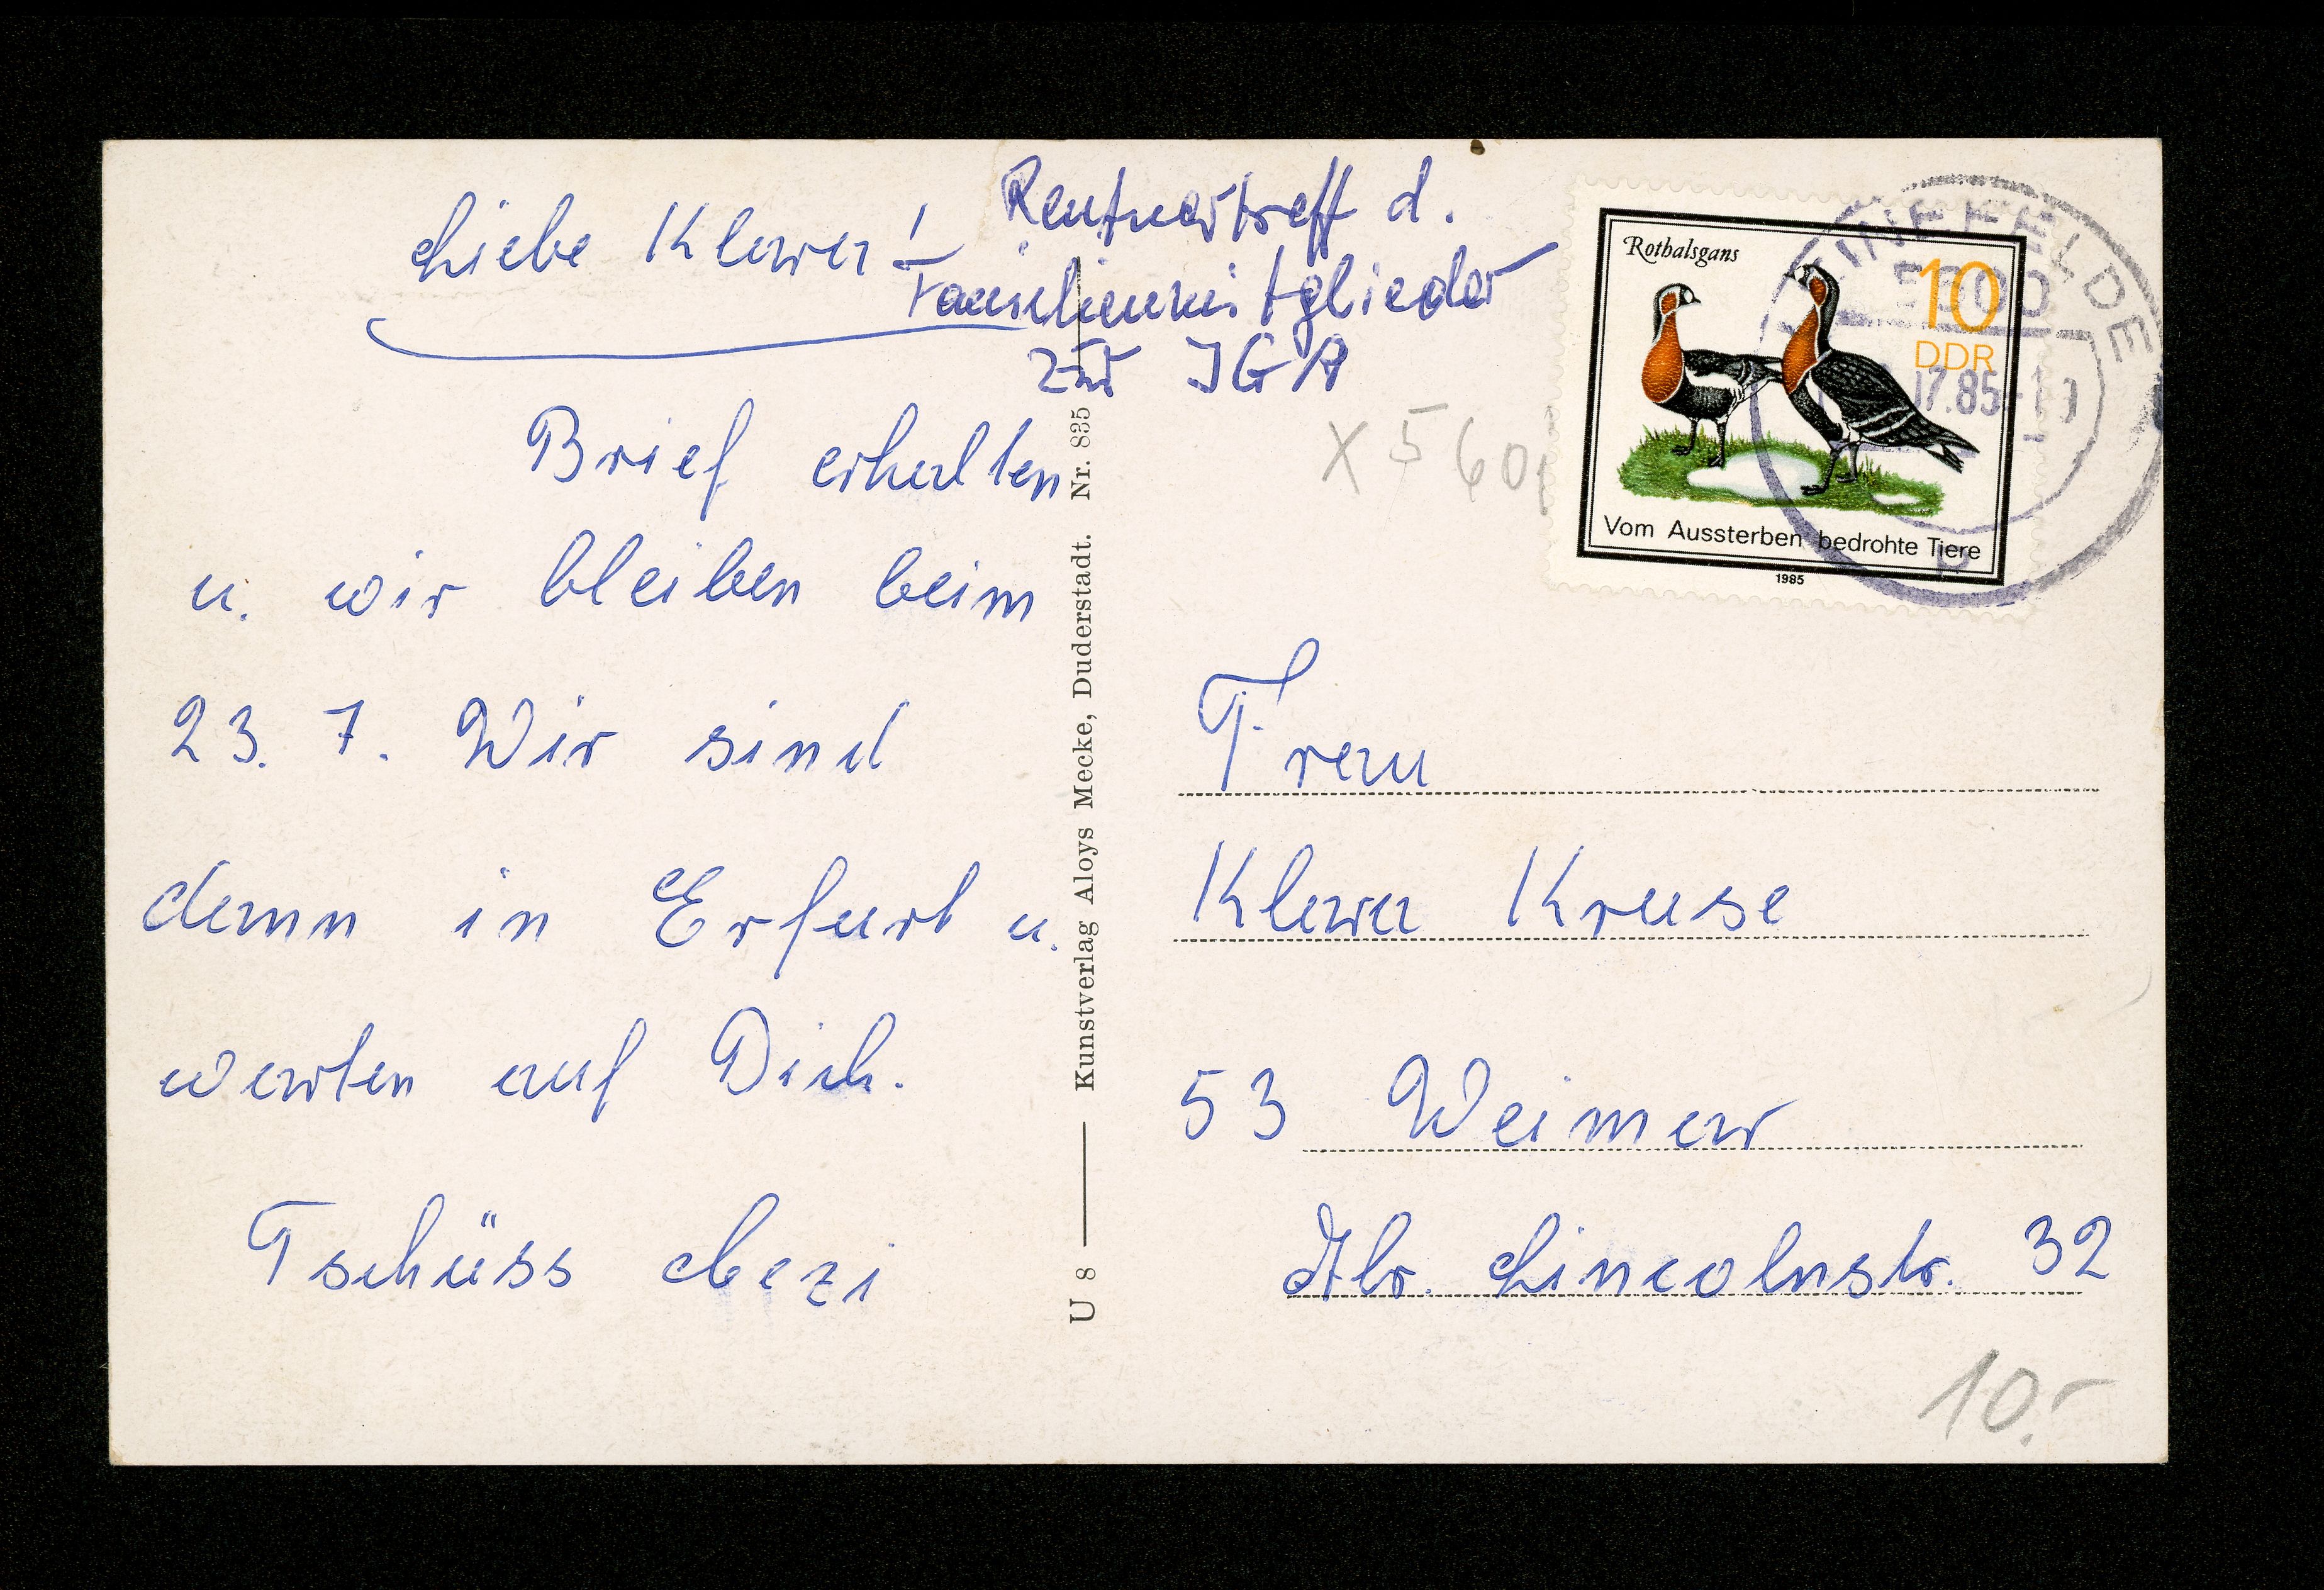 Liebe Klara!
Rentnertreff d.
Familienmitglieder
zur IGA
Brief erhalten
u. wir bleiben beim
23. 7. Wir sind
dann in Erfurt u.
warten auf Dich.
Tschüss
U 8 Kunstverlag Aloys Mecke, Duderstadt. Nr. 835
X 560,
Rothalsgans
10
DDR
Vom Aussterben bedrohte Tiere
1985
LEINEFELDE
5600
17.85-1
p
Frau
Klara Kruse
53 Weimar
Abr. Lincolnstr. 32
10.-